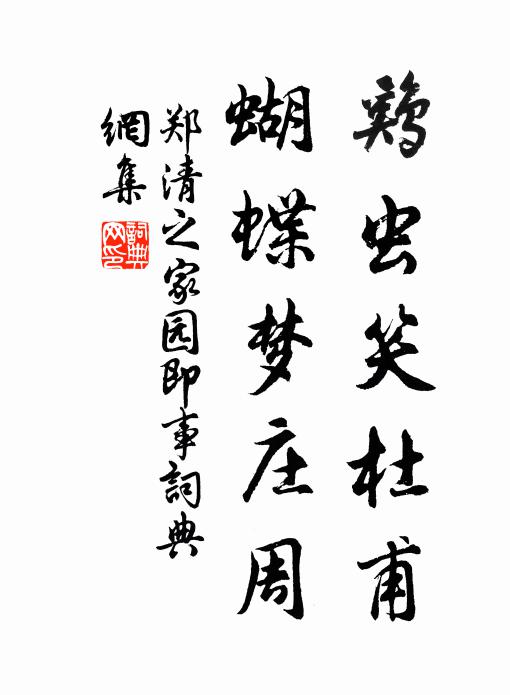 鷄虫笑杜甫
蝴蝶梦庄周
郑清之家园即事詞典
網集
詞典
网印